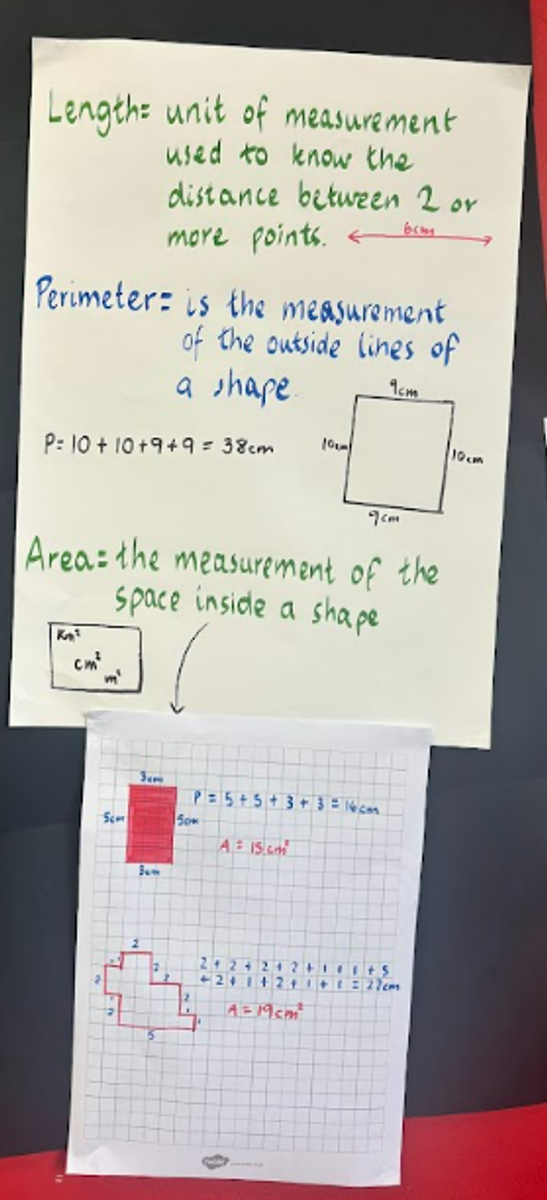 Length= unit of measurement
used to know the
distance between 2 or
more points.
6cm
Perimeter= is the measurement
of the outside lines of
a shape.
9cm
P= 10 + 10 + 9 + 9 = 38cm
10cm
10cm
9cm
Area= the measurement of the
space inside a shape
Km²
cm²
m²
3cm
P = 5 + 5 + 3 + 3 = 16cm
5cm
5cm
A = 15cm²
3cm
2
2 + 2 + 2 + 2 + 1 + 1 + 5
+ 2 + 1 + 2 + 1 + 1 = 22cm
2
2
2
A = 19cm²
2
1
5